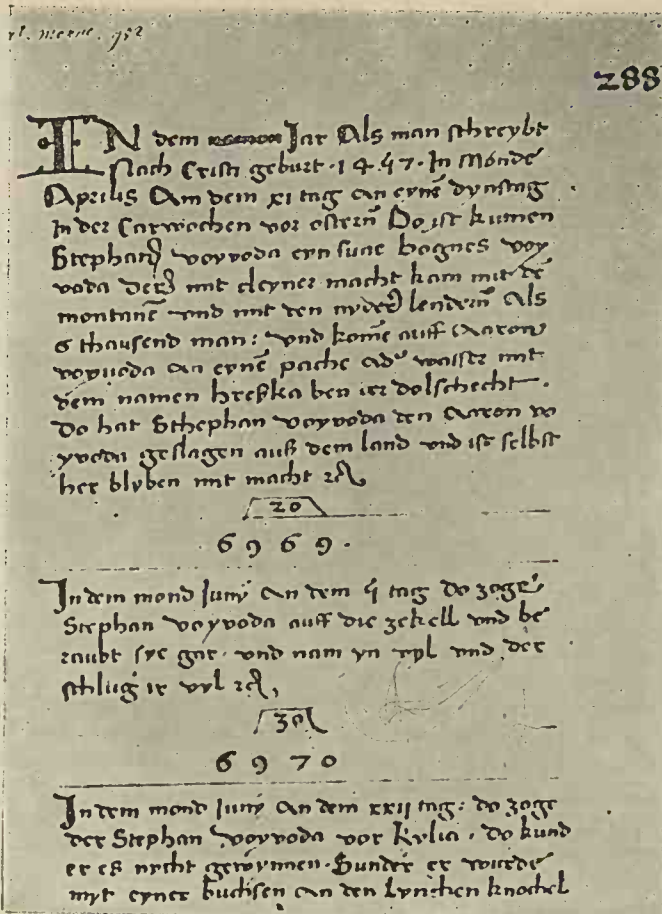 288
IN dem Jar Als man schreybt
Nach Cristi geburt · 1457 · In Monde
Aprilis Am dem xi tag an eynē dynstag
In der Carwochen vor osterñ Do ist kumen
Stephan voyvoda eyn sune bognes voy
voda der mit cleyner macht kam mit dē
montanē vnd mit den nyderñ lenderñ Als
6 thausend man : vnd komē auff Aaron
voyuoda an eynē pache ad' wasser mit
dem namen hreßka ben ier dolschecht ·
Do hat Sthephan voyvoda den Aaron vo
yvoda geslagen auß dem land vnd ist selbst
her blyben mit macht
20
6969 ·
In dem mond Juny An dem ij tag Do zoge
Stephan voyvoda auff die zekell vnd be
raubt sye gar · vnd nam yn vyl vnd der
schlug ir vyl
30
6970
In dem mond Juny An dem xxij tag : do zoge
der Stephan voyvoda vor Kylia · do kund
er eß nycht gewynnen · Sunder er wurde
myt eyner buchsen An den Lynchen knochel